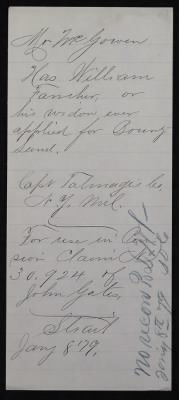 Mr McGowen
Has William
Fancher, or
his widow, ever
applied for Bounty
Land.
Capt Talmages Co,
N. Y. Mil.
For use in Pen
sion Claim No
30.924 of
John Gates,
Strait
Jany 8 '79,
No record
Jany 8th 79